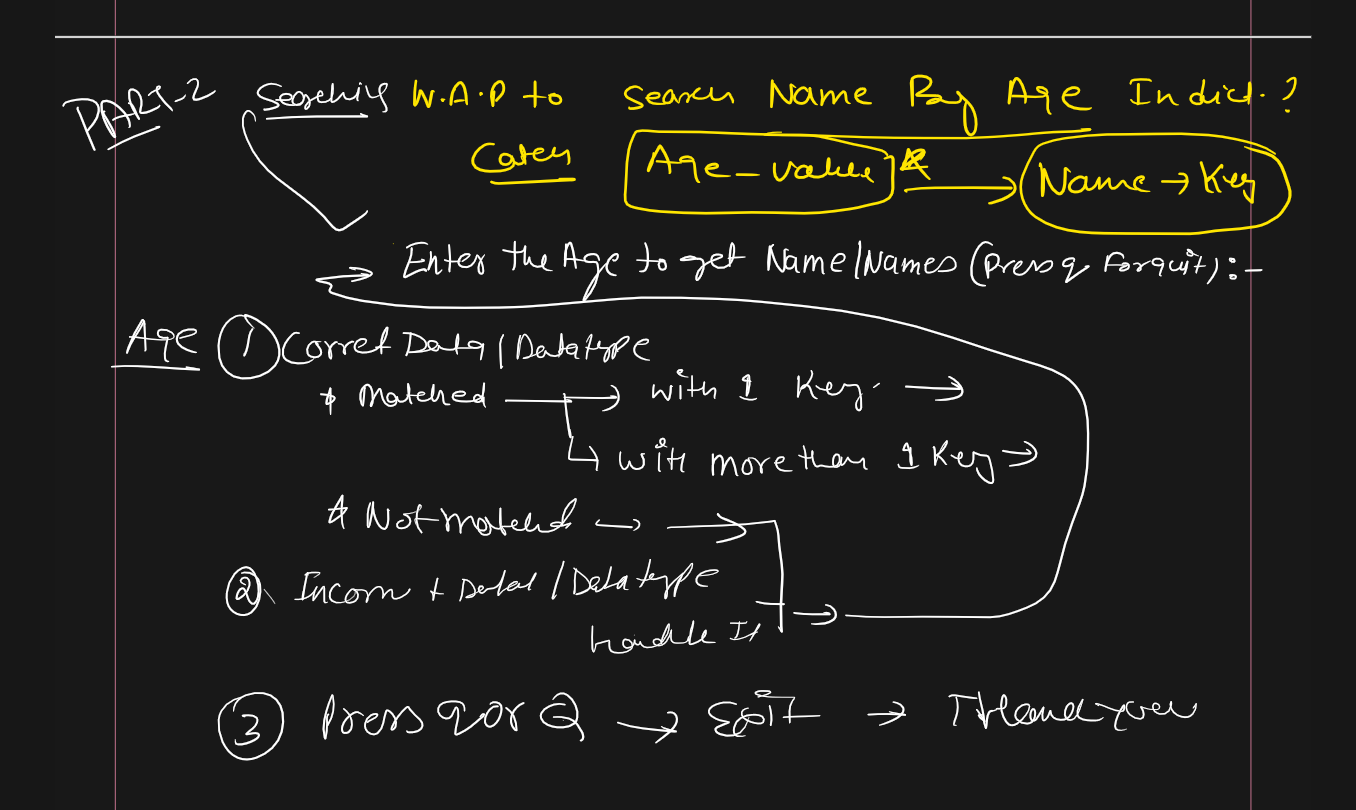 PART-2 Searching W.A.P to Search Name By Age In dict. ?
Age-value * → Name → Key
→ Enter the Age to get Name/Names (Press q For quit) :-
Age ① Corret Data / Datatype
* Matched → with 1 Key. →
↳ with more than 1 Key →
* Not-matched → →
② Data / Datatype
handle It →
③ Press q or Q → Exit → Thank you